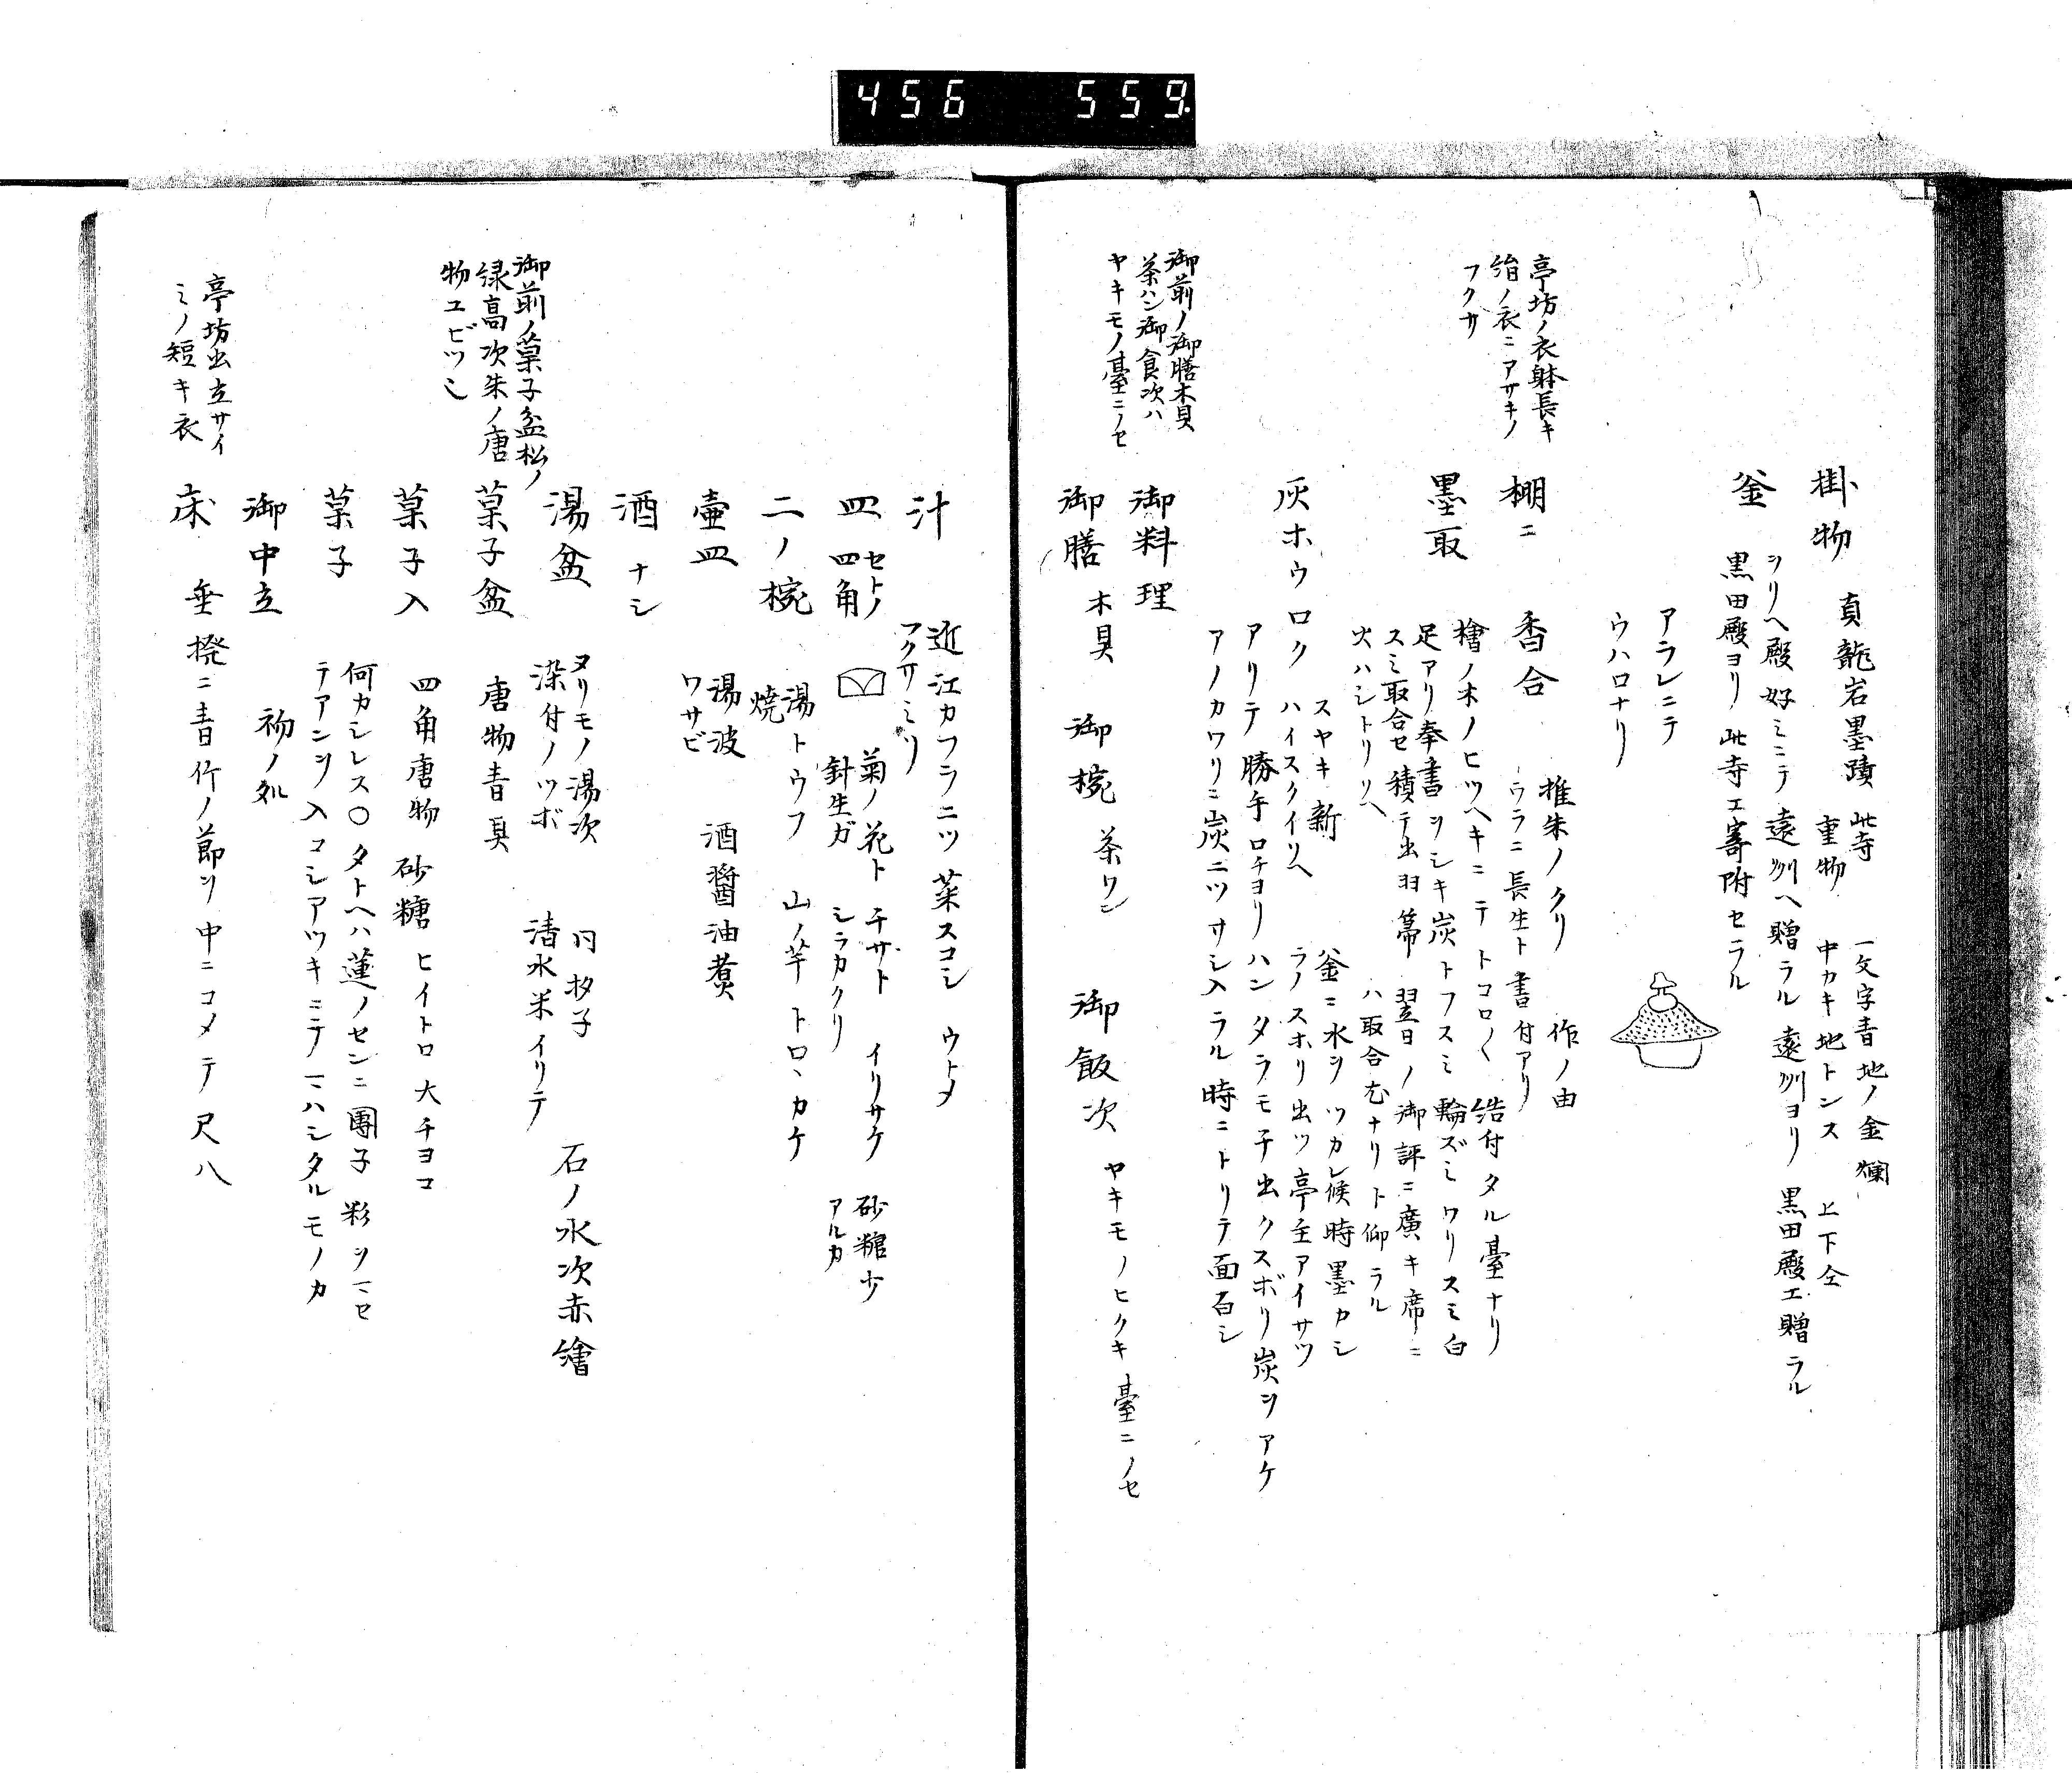 456 559
掛物 真龍岩墨蹟 此寺重物 一文字青地ノ金襴
中カキ地トンス 上下仝
シリヘ殿好ミニテ遠州ヘ贈ラル 遠州ヨリ黒田殿エ贈ラル
釜 黒田殿ヨリ此寺エ寄附セラル
アラレニテ
ウハロナリ
亭坊ノ衣躰長キ
ノ衣ニアサキノ
フクサ
棚ニ 香合 推朱ノクリ 作ノ由
ウラニ長生ト書付アリ
墨取 檜ノ木ノヒツヘキニテトコロ〱 結付タル臺ナリ
足アリ奉書ヲシキ炭トフスミ輪ズミワリスミ白
スミ取合セ積テ出ヨ箒 翌日ノ御評ニ廣キ席ニ
火ハシトリソヘ ハ取合尤ナリト仰ラル
灰ホウロク スヤキ新 釜ニ水ヲツカレ候時墨カシ
ハイスクイソヘ ラノスホリ出ツ亭主アイサツ
アリテ勝手ロチヨリハンタラモチ出クスボリ炭ヲアケ
アノカワリニ炭ニツサシ入ラル時ニトリテ面白シ
御前ノ御膳木具
茶ハン御食次ハ
ヤキモノ臺ニノセ
御料理
御膳 木具 御椀 茶ワン 御飯次 ヤキモノヒクキ臺ニノセ
汁 近江カフラニツ 菜スコシ ウトメ
アクサミソ
皿 セトノ四角 菊ノ花ト チサト イリサケ 砂糖少
針生ガ シラカクリ アルカ
二ノ椀 湯トウフ 山ノ芋 トロヽカケ
焼
壷皿 湯波 酒醤油煮
ワサビ
酒 ナシ
湯盆 ヌリモノ湯次 同杓子 石ノ水次赤繪
染付ノツボ 清水米イリテ
御前ノ菓子盆松ノ
緑高次朱ノ唐
物ユビツシ
菓子盆 唐物青貝
菓子入 四角唐物 砂糖 ヒイトロ大チヨコ
菓子 何カシレス〇タトヘハ蓮ノセンニ團子 彩ヲマセ
テアンヲ入コシアツキニテマハシタルモノカ
御中立 初ノ処
亭坊出立サイ
ミノ短キ衣
床 垂撥ニ青竹ノ節ヲ中ニコメテ尺八